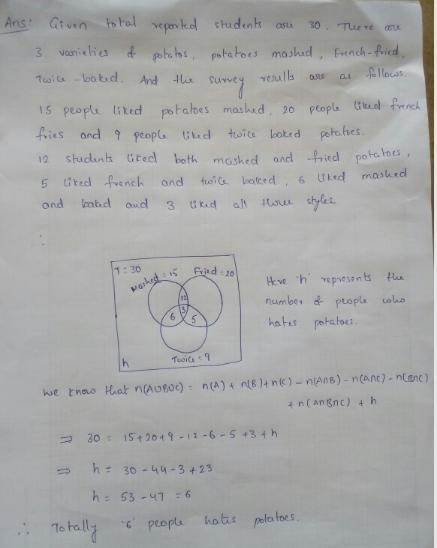 Ans: Given total reported students are 30. There are
3 varieties of potatos, potatoes mashed, French-fried,
Twice-baked. And the survey results are as follows.
15 people liked potatoes mashed, 20 people liked french
fries and 9 people liked twice baked potatoes.
12 students liked both mashed and fried potatoes,
5 liked french and twice baked, 6 liked mashed
and baked and 3 liked all three styles.
∴
T = 30
Mashed = 15 Fried = 20
12
3
6 5
Twice = 9
h
Here 'h' represents the
number of people who
hates potatoes.
We know that n(AUBUC) = n(A) + n(B) + n(C) - n(A∩B) - n(A∩C) - n(B∩C)
+ n(A∩B∩C) + h
⇒ 30 = 15+20+9-12-6-5+3+h
⇒ h = 30-44-3+23
h = 53-47 = 6
∴ Totally '6' people hates potatoes.